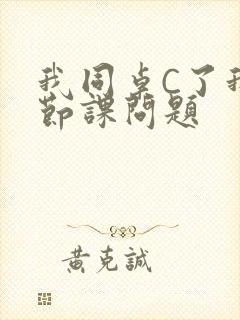 我同桌C了我
節課問題
黃克誠